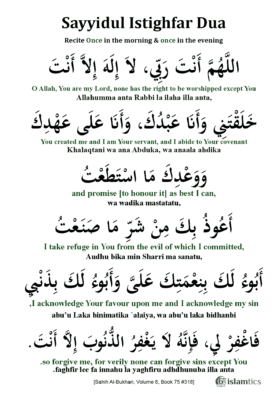 Sayyidul Istighfar Dua
Recite Once in the morning & once in the evening
اللَّهُمَّ أَنْتَ رَبِّي، لاَ إِلَهَ إِلاَّ أَنْتَ
O Allah, You are my Lord, none has the right to be worshipped except You
Allahumma anta Rabbi la ilaha illa anta,
خَلَقْتَنِي وَأَنَا عَبْدُكَ، وَأَنَا عَلَى عَهْدِكَ
You created me and I am Your servant, and I abide to Your covenant
Khalaqtani wa ana Abduka, wa anaala ahdika
وَوَعْدِكَ مَا اسْتَطَعْتُ
and promise [to honour it] as best I can,
wa wadika mastatatu,
أَعُوذُ بِكَ مِنْ شَرِّ مَا صَنَعْتُ
I take refuge in You from the evil of which I committed,
Audhu bika min Sharri ma sanatu,
أَبُوءُ لَكَ بِنِعْمَتِكَ عَلَيَّ وَأَبُوءُ لَكَ بِذَنْبِي
,I acknowledge Your favour upon me and I acknowledge my sin
abu'u Laka binimatika `alaiya, wa abu'u laka bidhanbi
فَاغْفِرْ لِي، فَإِنَّهُ لاَ يَغْفِرُ الذُّنُوبَ إِلاَّ أَنْتَ.
.so forgive me, for verily none can forgive sins except You
.faghfir lee fa innahu la yaghfiru adhdhunuba illa anta
[Sahih Al-Bukhari, Volume 8, Book 75 #318]
islamtics